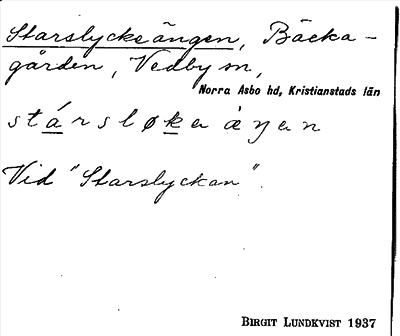 Starslyckeängen, Bäcka-
gården, Vedby sn,
Norra Asbo hd, Kristianstads län
stársløkeɳ àŋen
Vid "Starslyckan".
BIRGIT LUNDKVIST 1937